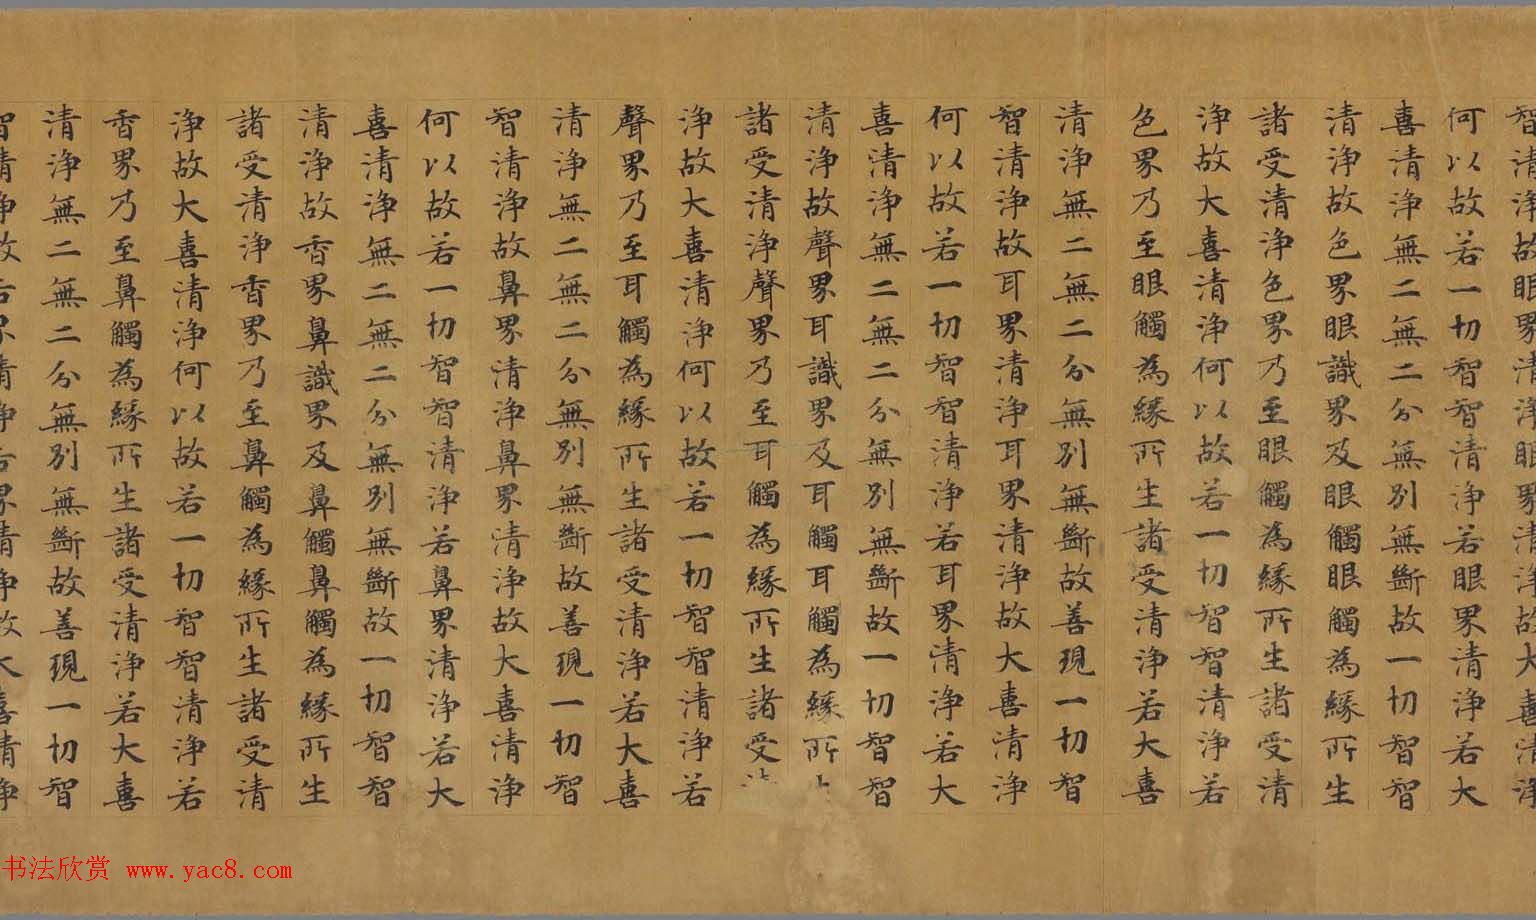 智清淨故眼界清淨眼界清淨故大喜清淨
何以故若一切智智清淨若眼界清淨若大
喜清淨無二無二分無別無斷故一切智智
清淨故色界眼識界及眼觸眼觸為緣所生
諸受清淨色界乃至眼觸為緣所生諸受清
淨故大喜清淨何以故若一切智智清淨若
色界乃至眼觸為緣所生諸受清淨若大喜
清淨無二無二分無別無斷故善現一切智
智清淨故耳界清淨耳界清淨故大喜清淨
何以故若一切智智清淨若耳界清淨若大
喜清淨無二無二分無別無斷故一切智智
清淨故聲界耳識界及耳觸耳觸為緣所
諸受清淨聲界乃至耳觸為緣所生諸受
淨故大喜清淨何以故若一切智智清淨若
聲界乃至耳觸為緣所生諸受清淨若大喜
清淨無二無二分無別無斷故善現一切智
智清淨故鼻界清淨鼻界清淨故大喜清淨
何以故若一切智智清淨若鼻界清淨若大
喜清淨無二無二分無別無斷故一切智智
清淨故香界鼻識界及鼻觸鼻觸為緣所生
諸受清淨香界乃至鼻觸為緣所生諸受清
淨故大喜清淨何以故若一切智智清淨若
香界乃至鼻觸為緣所生諸受清淨若大喜
清淨無二無二分無別無斷故善現一切智
智清淨故舌界清淨舌界清淨故大喜清淨
书法欣赏 www.yac8.com